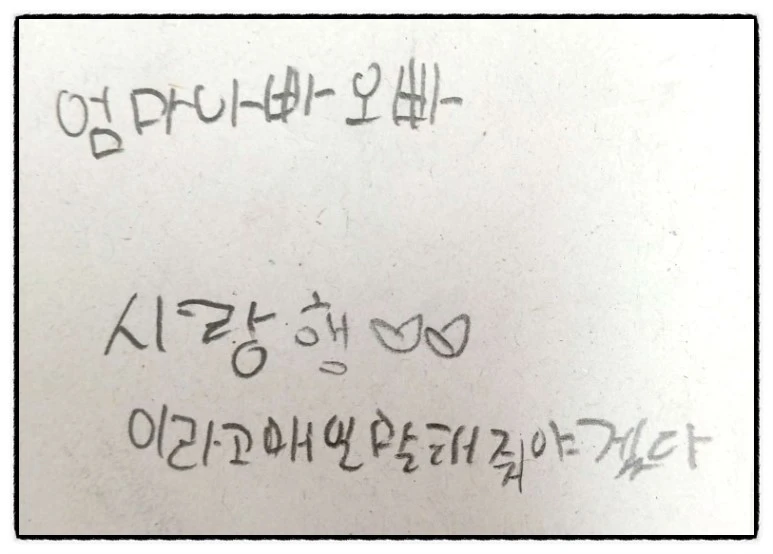 엄마나빠오빠
시랑행♡♡
이라고매일말태줘야겠다